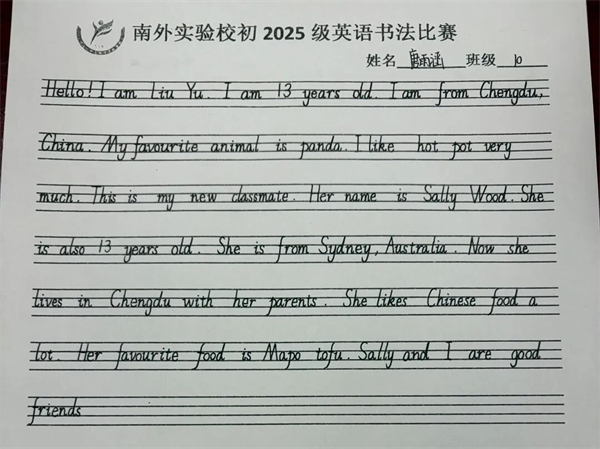 南外实验校初 2025 级英语书法比赛
姓名 雨涵 班级 10
Hello! I am Liu Yu. I am 13 years old. I am from Chengdu,
China. My favourite animal is panda. I like hot pot very
much. This is my new classmate. Her name is Sally Wood. She
is also 13 years old. She is from Sydney, Australia. Now she
lives in Chengdu with her parents. She likes Chinese food a
lot. Her favourite food is Mapo tofu. Sally and I are good
friends